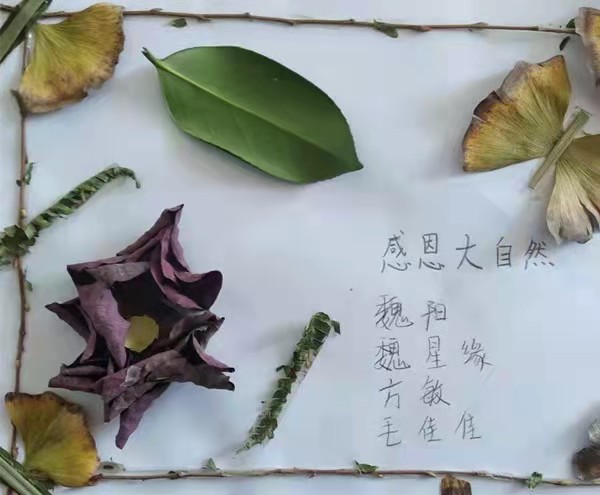 感恩大自然
魏阳
魏星缘
方敏
毛佳佳